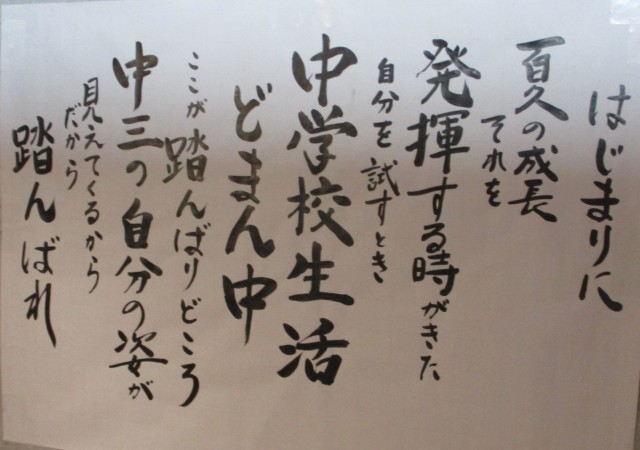 はじまりに
夏の成長
それを
発揮する時がきた
自分を試すとき
中学校生活
どまん中
ここが踏んばりどころ
中三の自分の姿が
見えてくるから
だから
踏んばれ